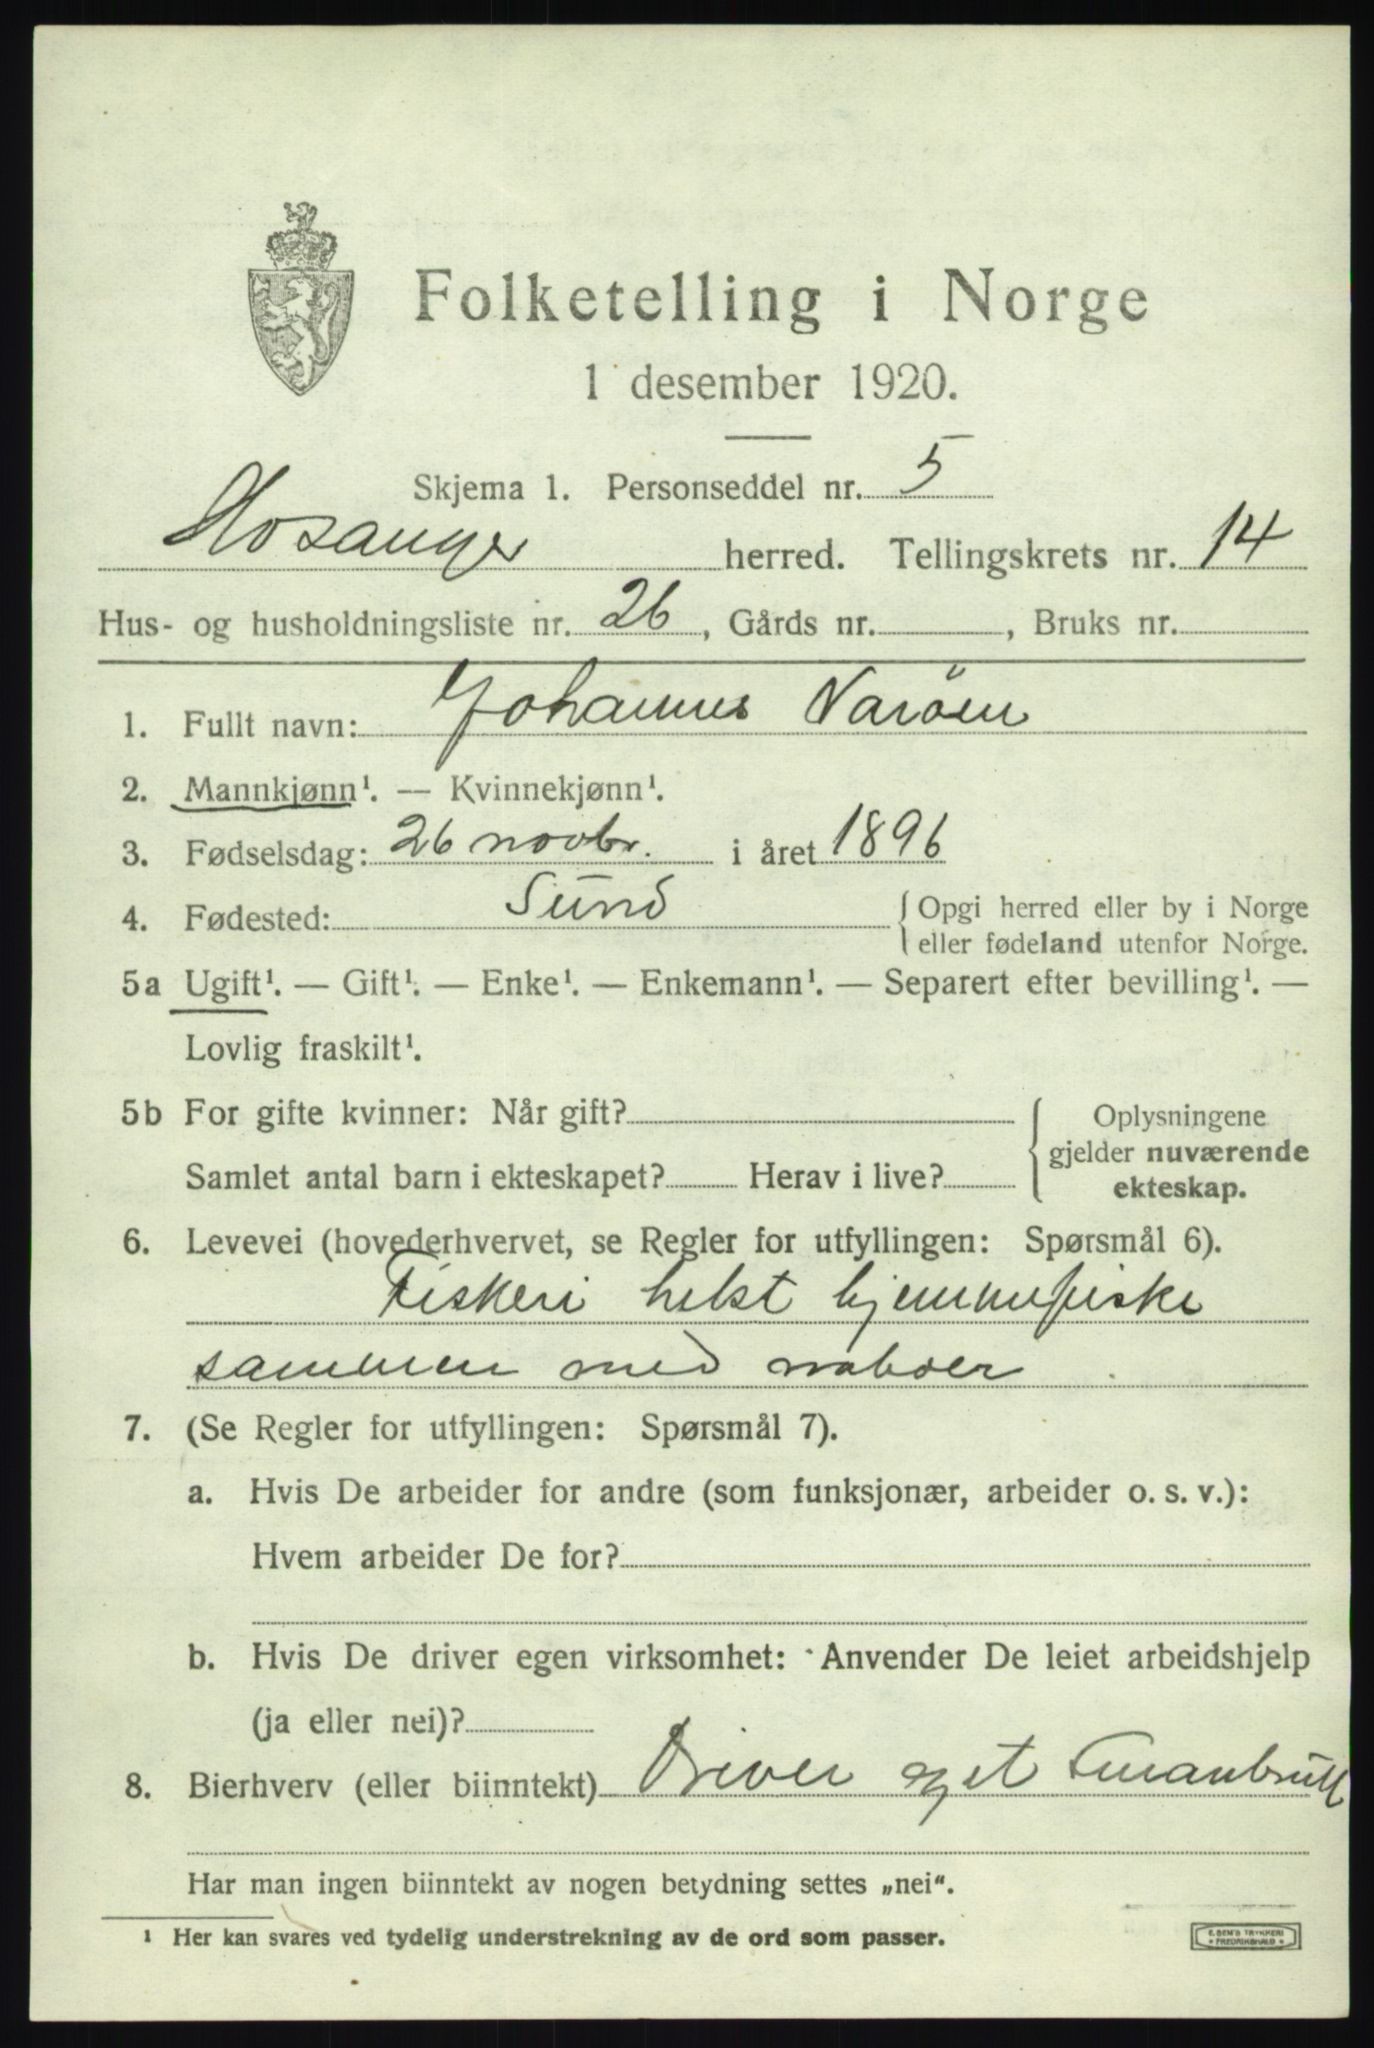 Folketelling i Norge
1 desember 1920.
Skjema 1. Personseddel nr. 5
Hosanger herred. Tellingskrets nr. 14
Hus- og husholdningsliste nr. 26, Gårds nr. , Bruks nr.
1. Fullt navn: Johannes Naröen
2. Mannkjønn¹. — Kvinnekjønn¹.
3. Fødselsdag: 26 novbr. i året 1896
4. Fødested: Sund { Opgi herred eller by i Norge
eller fødeland utenfor Norge.
5a Ugift¹. — Gift¹. — Enke¹. — Enkemann¹. — Separert efter bevilling¹. —
Lovlig fraskilt¹.
5b For gifte kvinner: Når gift? { Oplysningene
gjelder nuværende
Samlet antal barn i ekteskapet? Herav i live?
ekteskap.
6. Levevei (hovederhvervet, se Regler for utfyllingen: Spørsmål 6).
Fiskeri helst hjemmefiske
sammen med naboer
7. (Se Regler for utfyllingen: Spørsmål 7).
a. Hvis De arbeider for andre (som funksjonær, arbeider o. s. v.):
Hvem arbeider De for?
b. Hvis De driver egen virksomhet: Anvender De leiet arbeidshjelp
(ja eller nei)?
8. Bierhverv (eller biinntekt) Driver eget Smaabruk
Har man ingen biinntekt av nogen betydning settes „nei“.
¹ Her kan svares ved tydelig understrekning av de ord som passer.
E. SEM'S TRYKKERI
FREDRIKSHALD